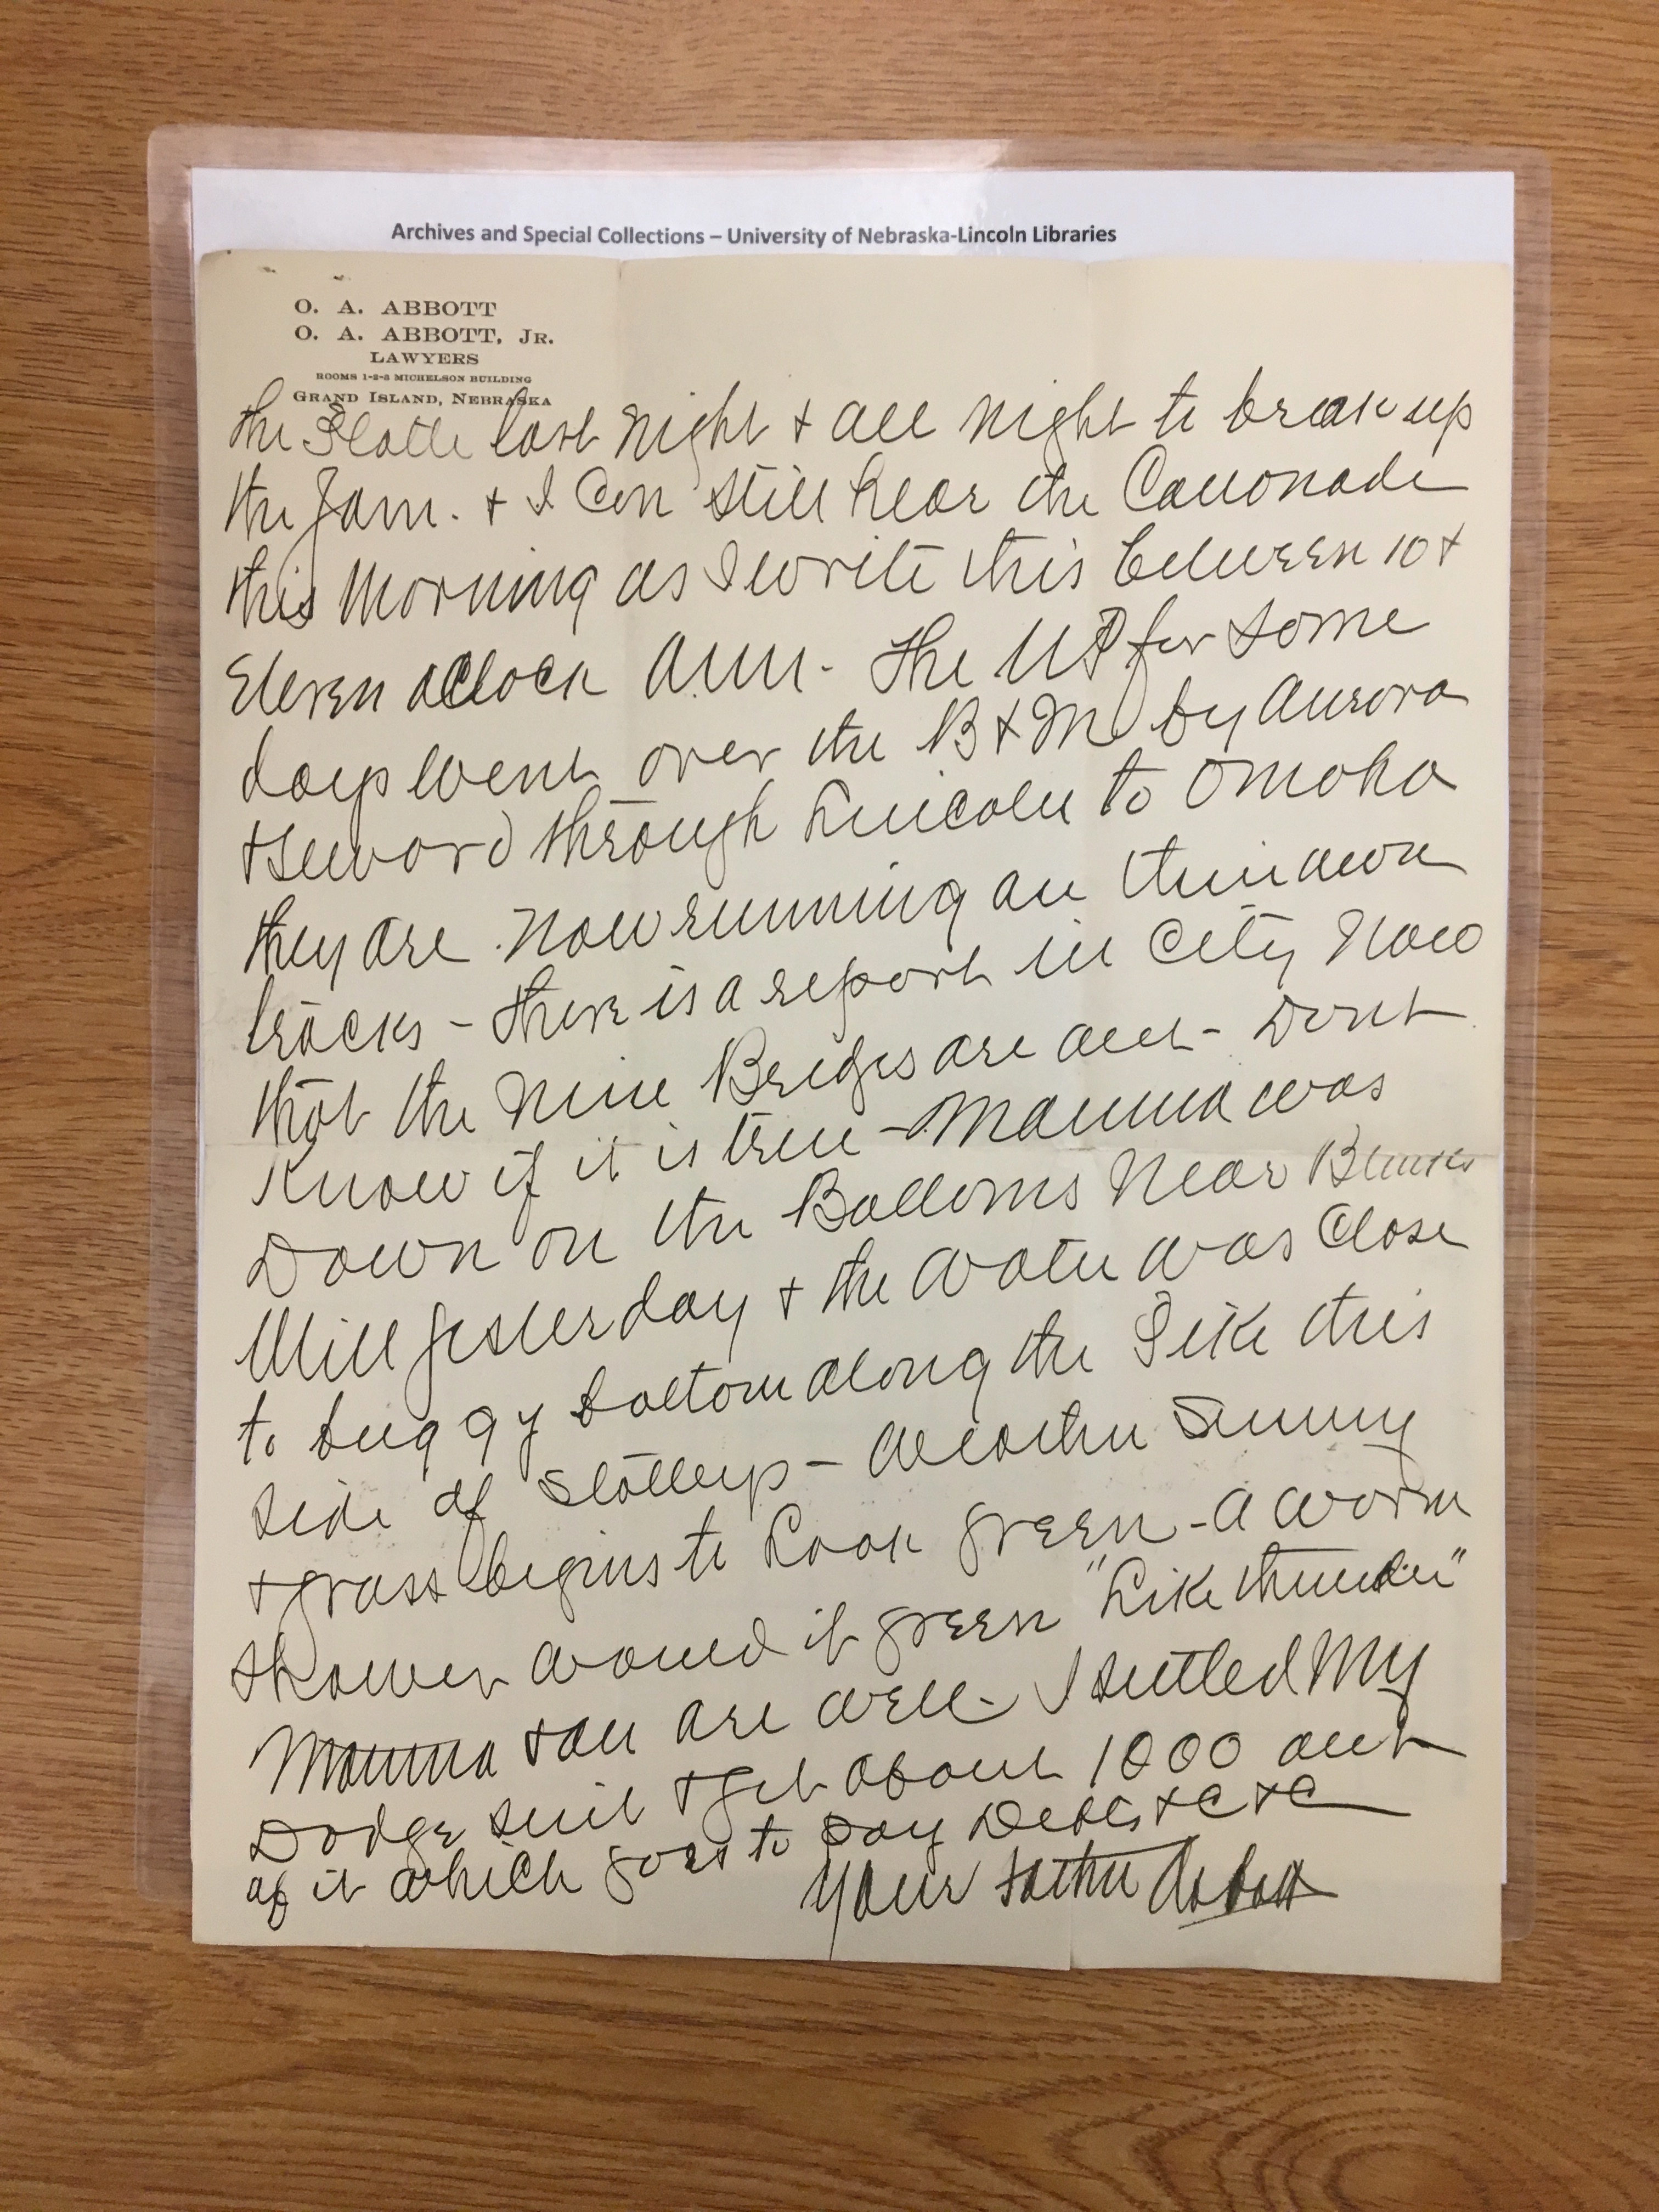 Archives and Special Collections – University of Nebraska-Lincoln Libraries
O. A. ABBOTT
O. A. ABBOTT, JR.
LAWYERS
ROOMS 1-2-3 MICHELSON BUILDING
GRAND ISLAND, NEBRASKA
the Platte last night + all night to break up
the Jam. + I Can still hear the Canonade
this Morning as I write this between 10 +
Eleven oClock AM - The UP for some
days went over the B + M by Aurora
+ Seward through Lincoln to Omaha
they are now running on their own
tracks - there is a report in City Now
that the Nine Bridges are out - Dont
Know if it is true - Mamma was
Down on the Bottoms Near
Mill yesterday + the water was Close
to buggy bottom along the Pike this
side of Stolleys - Weather Sunny
+ grass begins to Look green - A worm
shower would it green "Like thunder"
Mamma + all are well - I settled My
Dodge suit + get about 1000 out
of it which goes to pay Debts + C + C
Your father Abbott